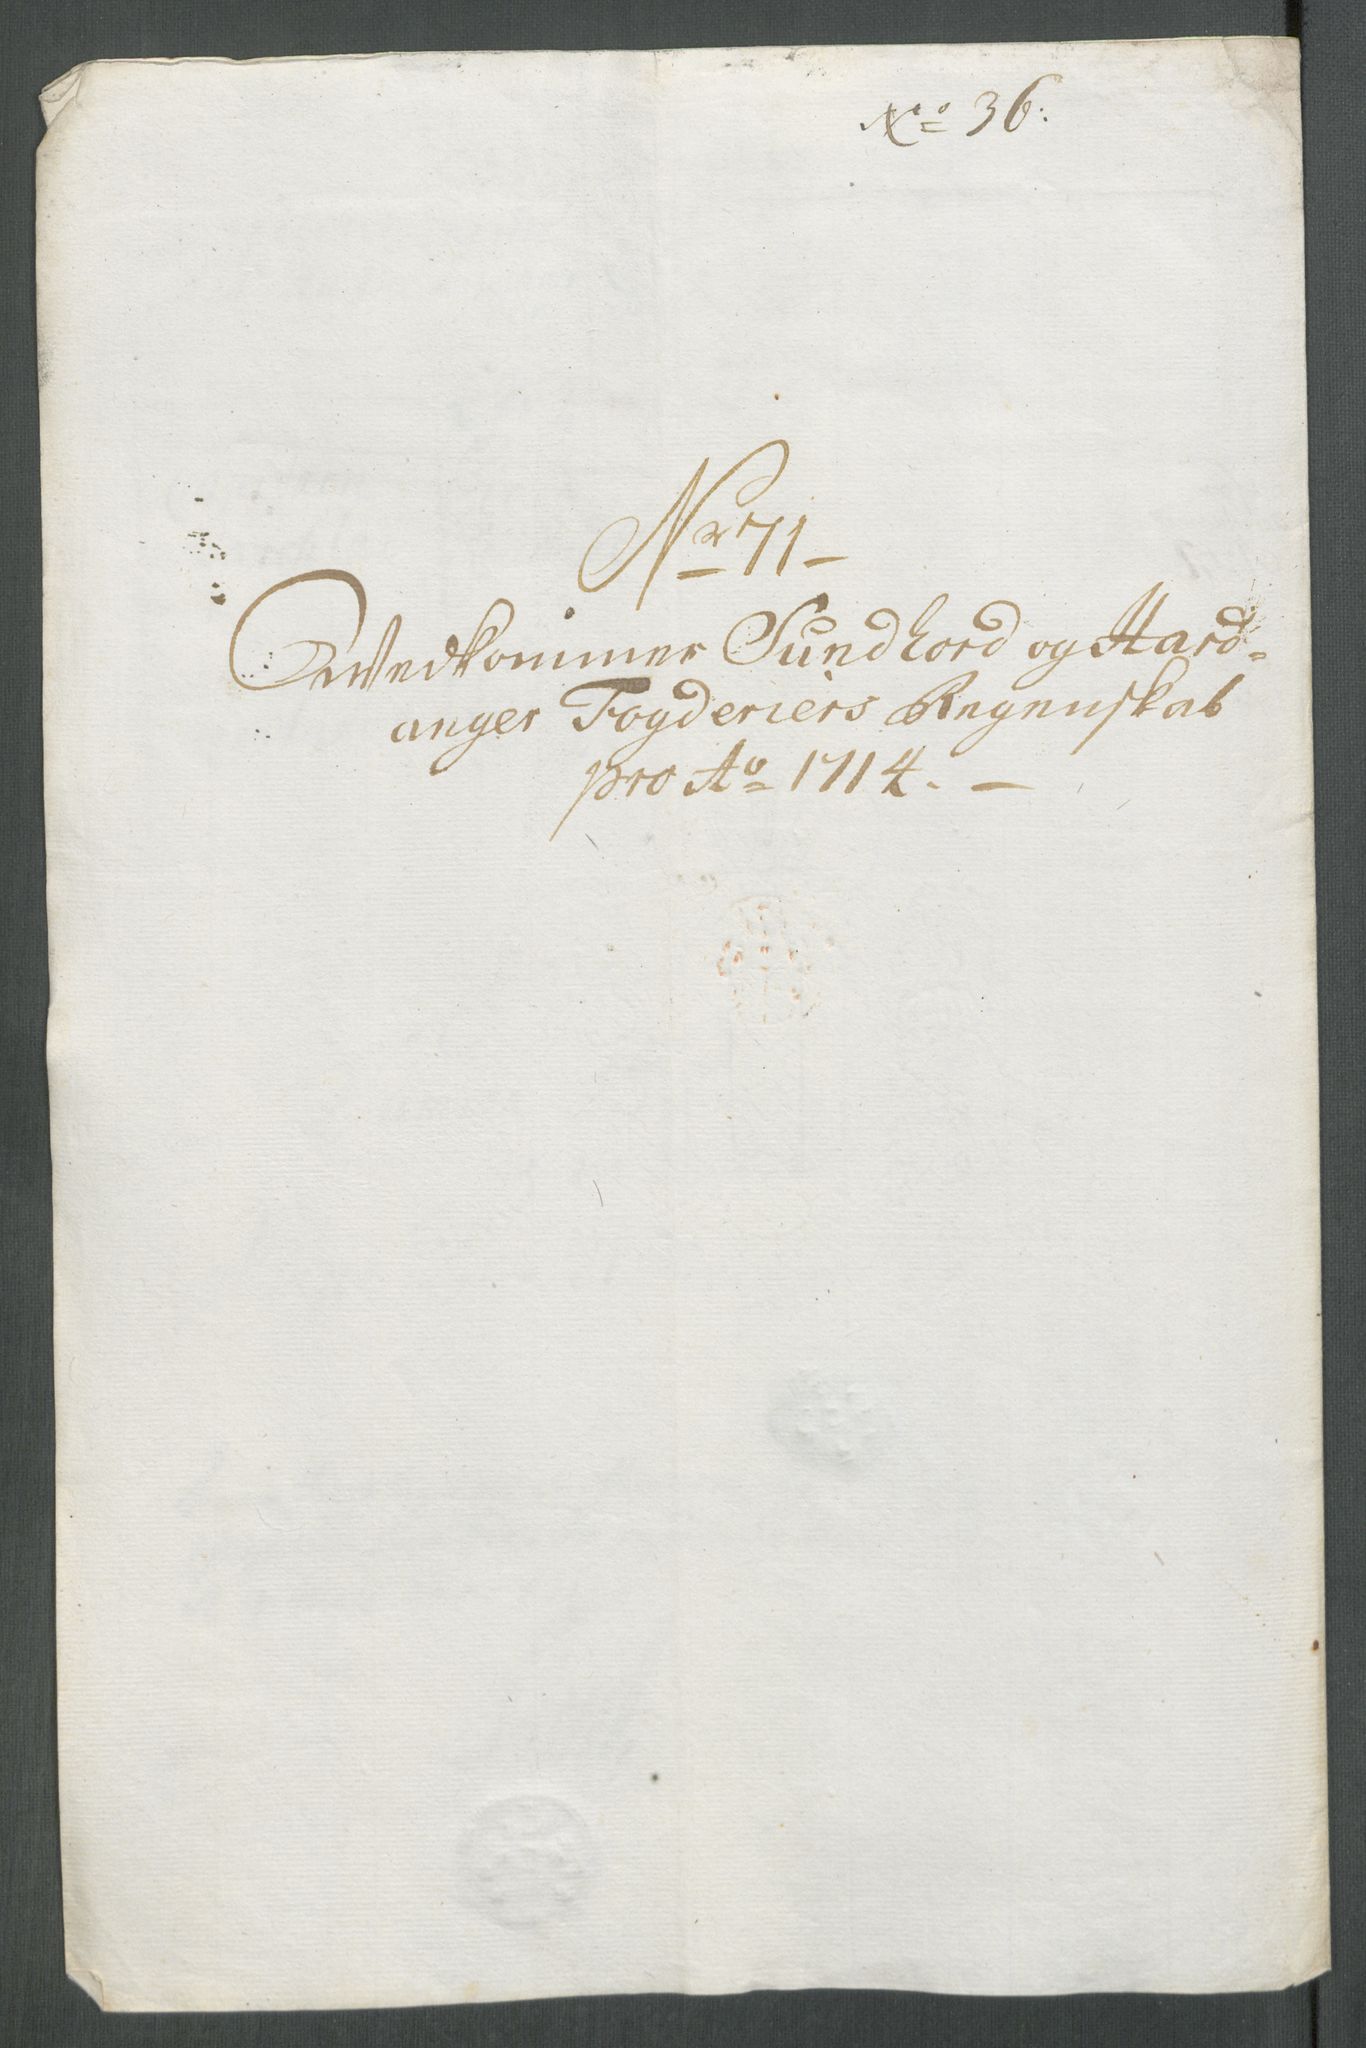 No 36:
Nr 71 -
Vedkommer Sundhord og Hard-
anger Fogderiers Regenskab
pro Ao 1714. -